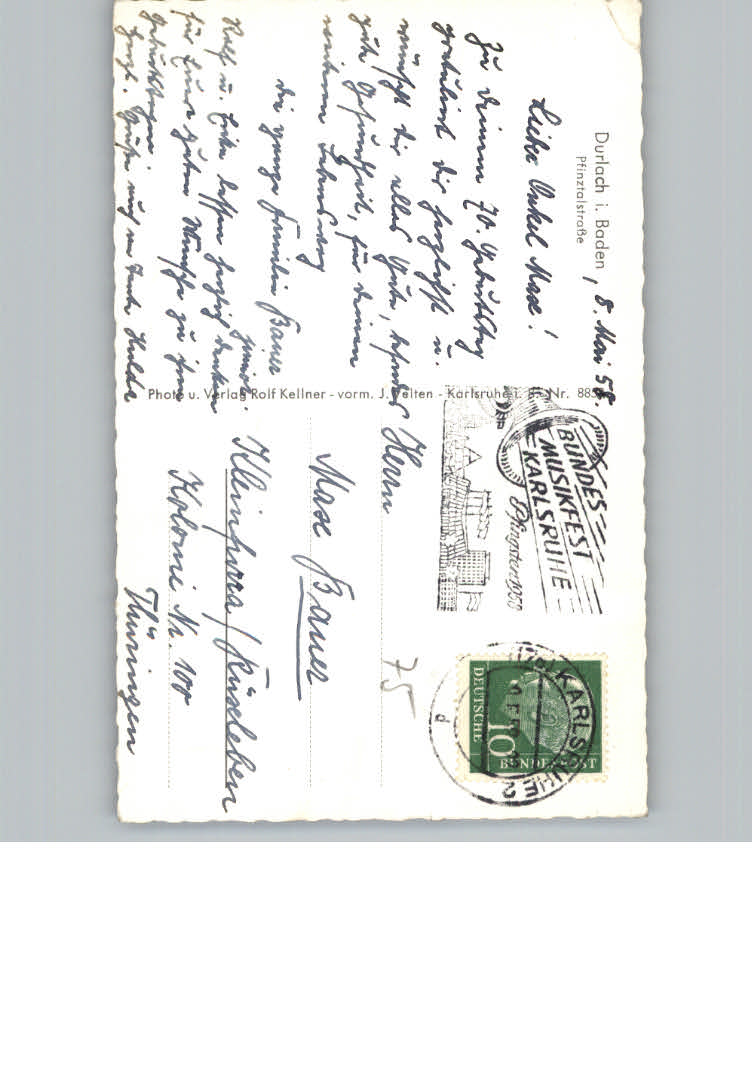 Durlach i. Baden, 8. Mai 58.
Pfinztalstraße
Lieber Onkel Max!
Zu Deinem 70. Geburtstag
gratuliert Dir herzlichst u.
wünscht Dir alles Gute, besonders
gute Gesundheit, für Deinen
weiteren Lebensweg
die ganze Familie Bauer
junior.
Rolf u. lassen herzlich danken
für Eure guten Wünsche zu ihren
Geburtstagen.
Herzl. Grüße auch an Tante Hulda
Photo u. Verlag Rolf Kellner - vorm. J. Velten - Karlsruhe i. B. - Nr.
BUNDES
MUSIKFEST
KARLSRUHE
Pfingsten 1958
KARLSRUHE 2
d
DEUTSCHE
BUNDESPOST
10
75
Herrn
Max Bauer
Kleinfurra / Rüxleben
Kolonie Nr. 100
Thüringen